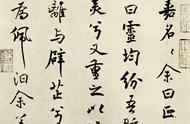 嘉名〻余曰正
曰靈均紛吾
美兮又重之以
離與辟芷兮
為佩汩余